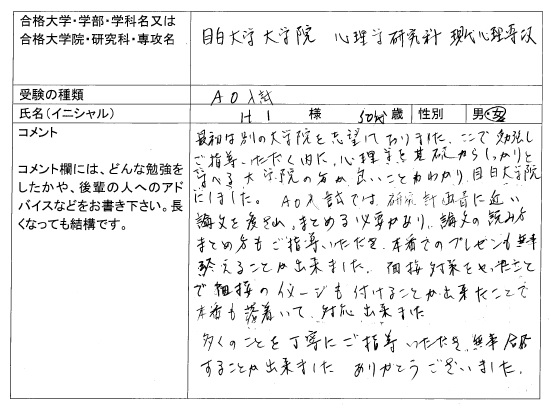 合格大学・学部・学科名又は
合格大学院・研究科・専攻名
目白大学大学院 心理学研究科 現代心理専攻
受験の種類
AO入試
氏名(イニシャル)
H I 様 50代歳 性別 男・女
コメント
コメント欄には、どんな勉強を
したかや、後輩の人へのアド
バイスなどをお書き下さい。長
くなっても結構です。
最初は別の大学院を志望しておりました。ここで勉強し
ご指導いただく内に、心理学を基礎からしっかりと
学べる大学院の方が良いことがわかり、目白大学院
にしました。AO入試では研究計画書に近い
論文を提出し、まとめる必要があり、論文の読み方
まとめ方もご指導いただき、本番でのプレゼンも無事
終えることが出来ました。面接対策をやったこと
で面接のイメージも付けることが出来たことで
本番も落着いて、対応出来ました
多くのことを丁寧にご指導いただき、無事合格
することが出来ました ありがとうございました。